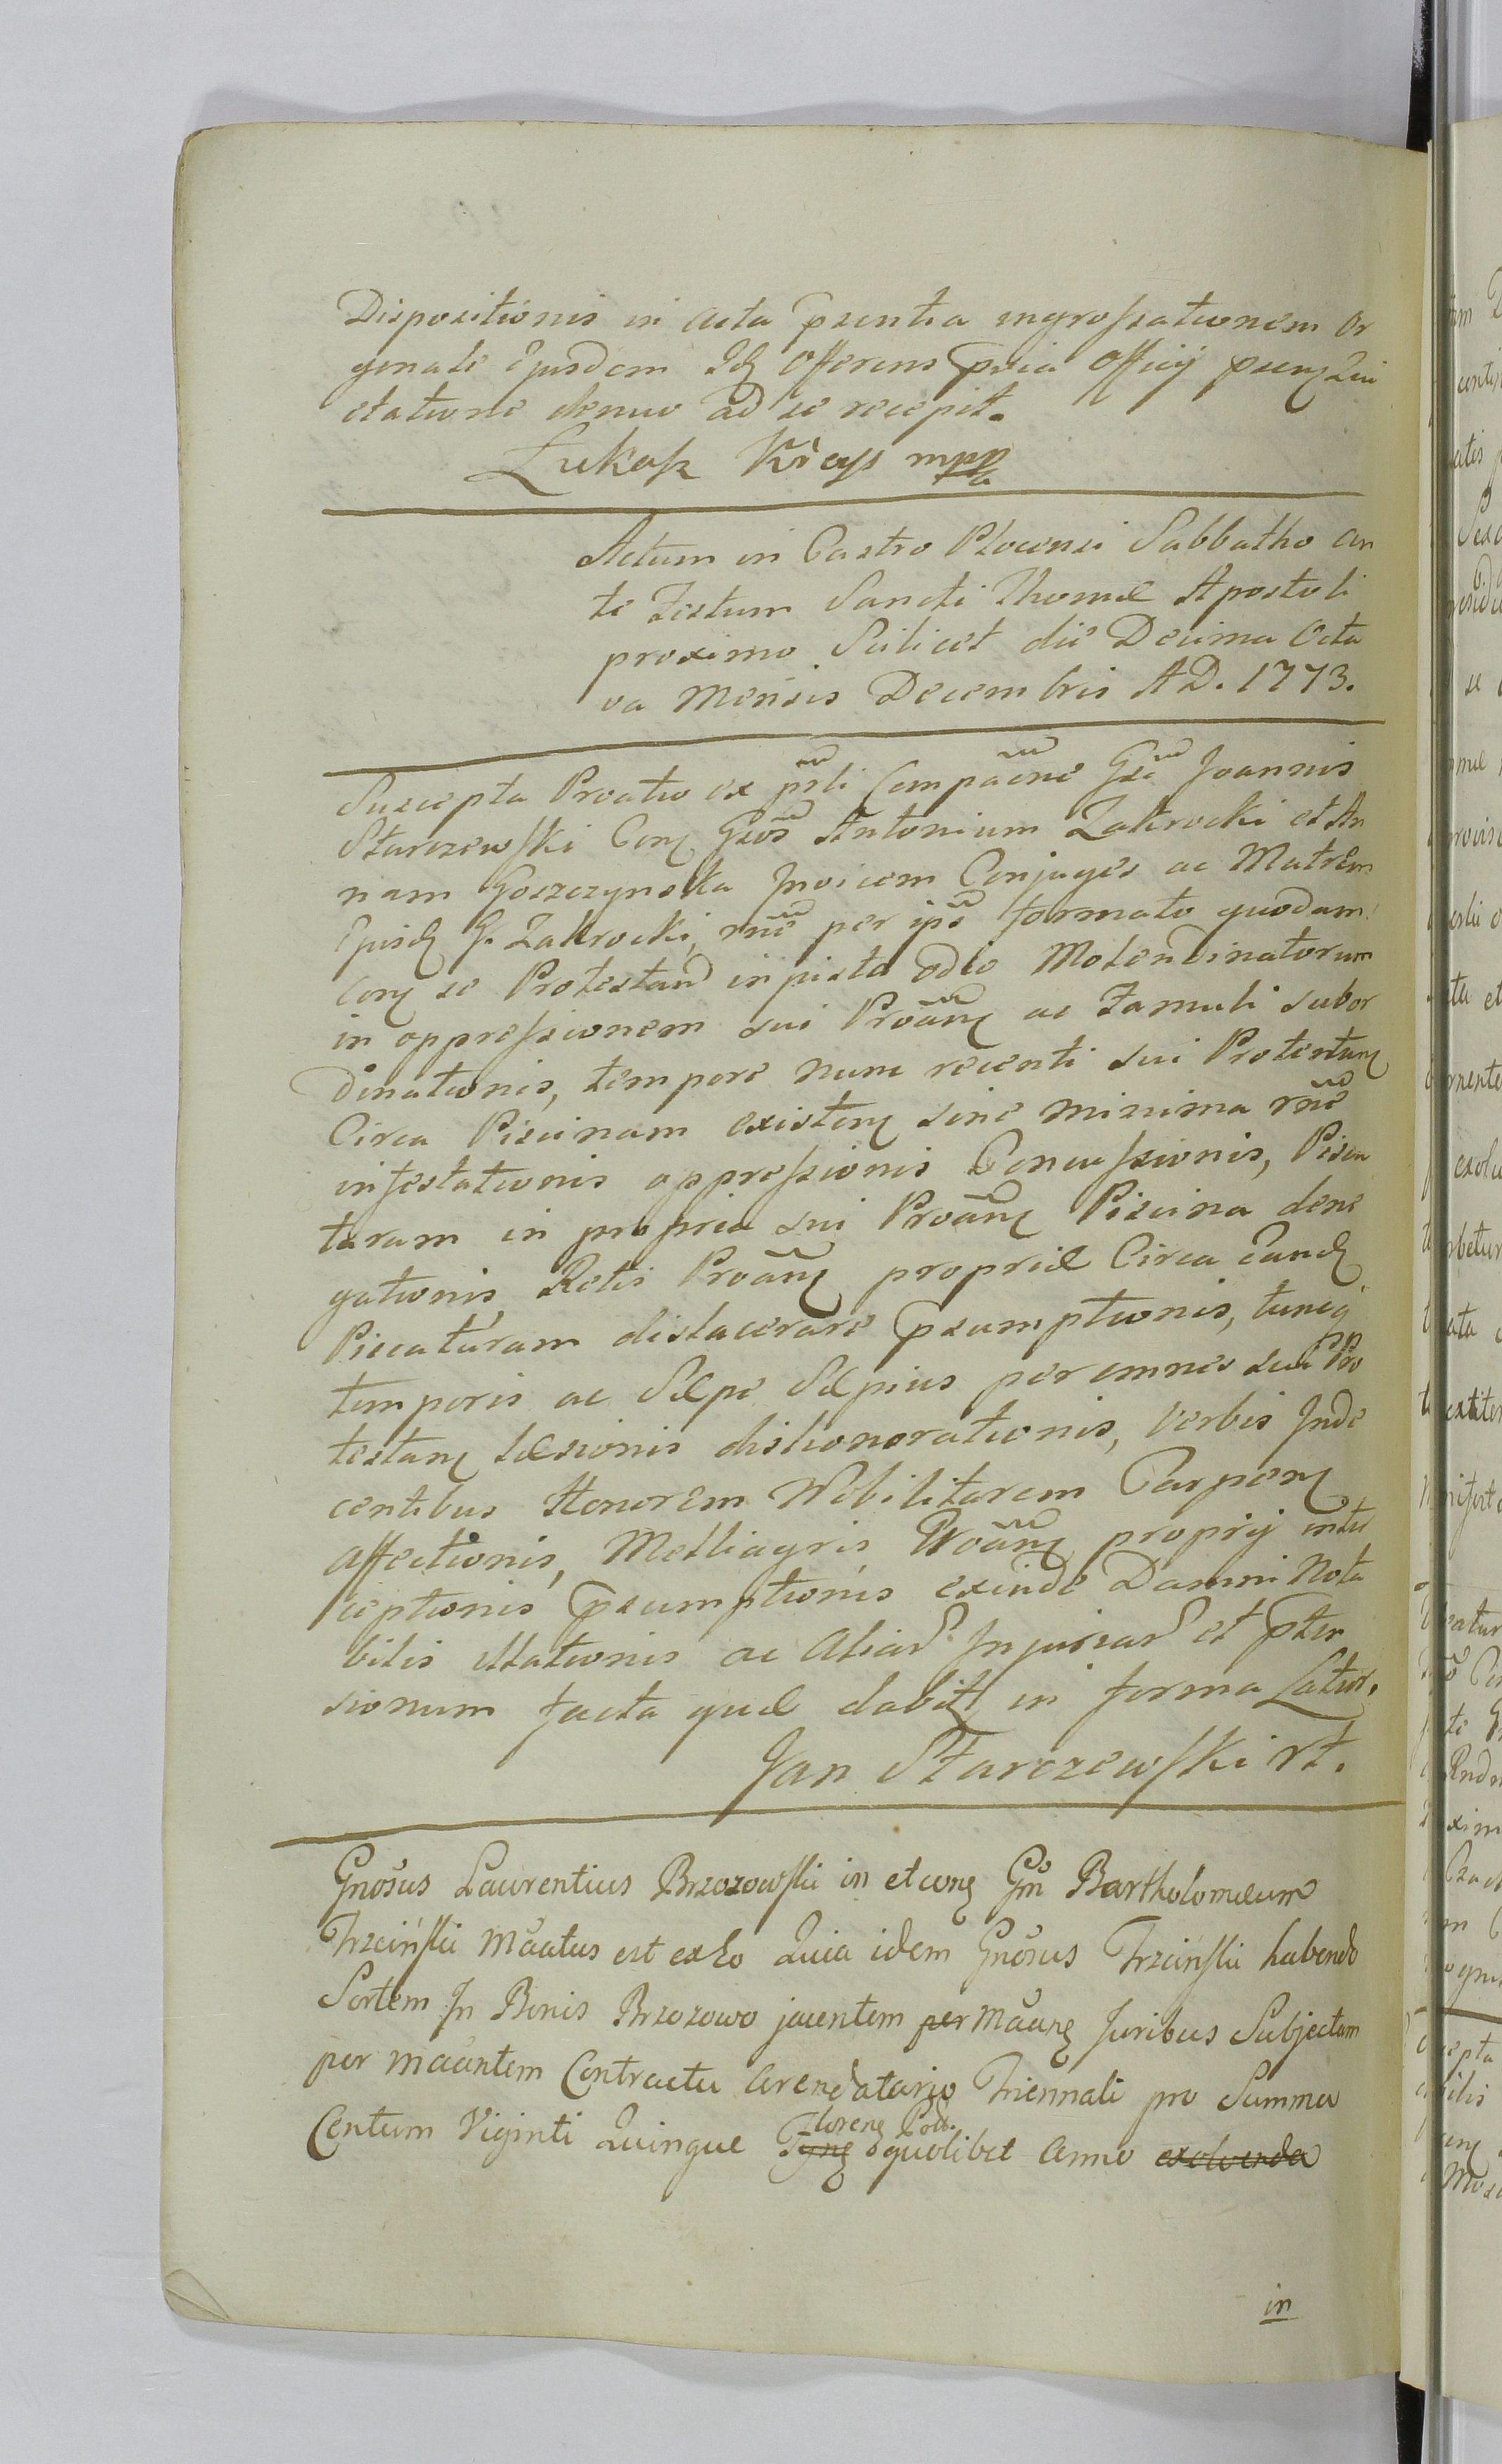 Dispositionis in acta pręsentia ingrossationem Or
ginale Ejusdem Idq Offerens Officij
ctatione denuo ad se recepit.
Łukasz Krays mpp
Actum in Castro Płocensi Sabbatho an
te Festum Sancti Thomæ Apostoli
proximo Scilicet die Decima Octa
va Mensis Decembris AD. 1773.
Suscepta Proatio ex psli Compaõne Gsi Joannis
Starczewski Conq Gsos Antonium Zakrocki et An
nam Goszczynska Invicem Conjuges ac Matrem
Ejusdq G. Zakrocki, rñe per ips formato quodam
conq se Protestand injusta odio Molendinatorum
in oppressionem sui Proãnq ac Famuli subor
dinationis, tempore nunc recenti sui Protestanq
Circa Piscinam existenq sine minima rñe
infestationis oppressionis Concussionis, Pisca
turam in propria sui Proãnq Piscina dene
gationis, Retis Proãnq propriæ Circa Eandq
Piscaturam dislacerare Psumptionis, tuncq
temporis ac Sæpe Sæpius per omnes sui Pro
testanq læsionis dishonorationis, Verbis Inde
centibus Honorem Nobilitarem Carpenq
affectionis, Melliagris Proãnq proprij inter
ceptionis Psumptionis exinde Damni Nota
bilis illationis ac Aliar Injuriar et Pten
sionum facta quæ dabitq in forma Latior.
Jan Starczewski rt.
Gnosus Laurentius Brzozowski in et conq Gñ Bartholomæum
Trzcinski Mãatus est ex Eo Quia idem Gnosus Trzcinski habendo
Sortem In Bonis Brzozowo jacentem per Mãanq Juribus Subjectam
per Mãantem Contractu Arendatorio Triennali pro Summa
Centum Viginti Quinque Tynq Florenq Poll. quolibet Anno exolvenda
in